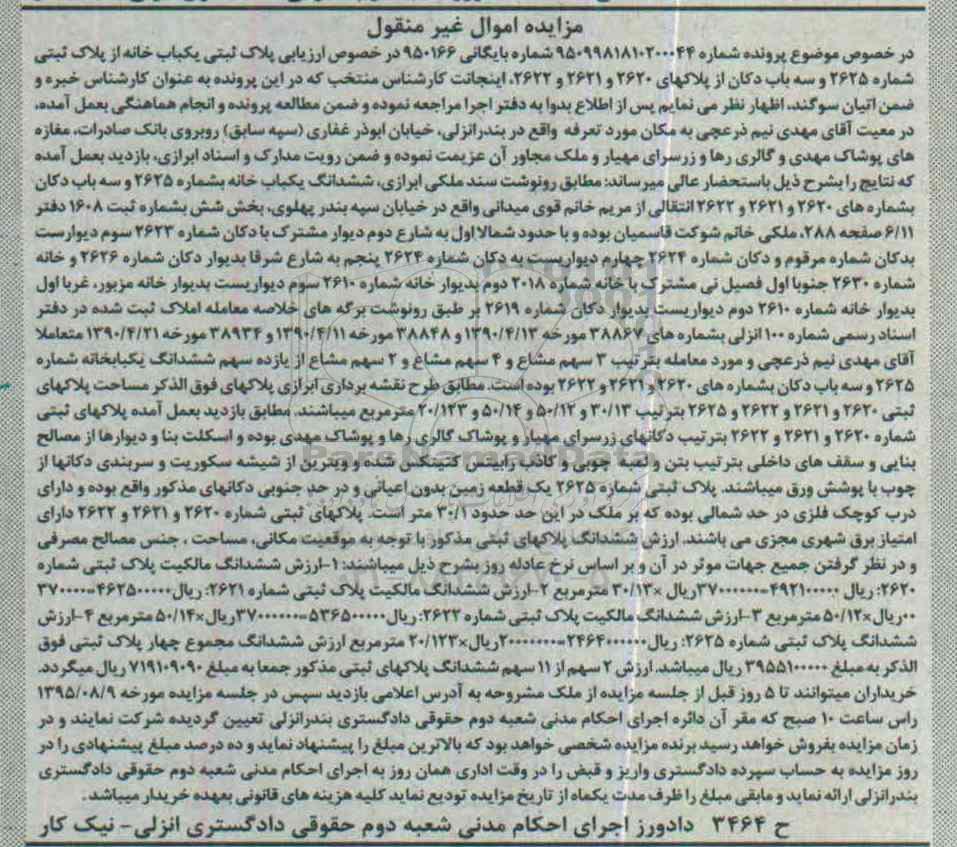 مزایده اموال غیر منقول
در خصوص موضوع پرونده شماره ۹۵۰۹۹۸۱۸۱۰۲۰۰۰۴۴ شماره بایگانی ۹۵۰۱۶۶ در خصوص ارزیابی پلاک ثبتی یکباب خانه از پلاک ثبتی
شماره ۲۶۲۵ و سه باب دکان از پلاکهای ۲۶۲۰ و ۲۶۲۱ و ۲۶۲۲، اینجانب کارشناس منتخب که در این پرونده به عنوان کارشناس خبره و
ضمن اتیان سوگند، اظهار نظر می نمایم پس از اطلاع بدوا به دفتر اجرا مراجعه نموده و ضمن مطالعه پرونده و انجام هماهنگی بعمل آمده،
در معیت آقای مهدی نیم ذرعچی به مکان مورد تعرفه واقع در بندرانزلی، خیابان ابوذر غفاری (سپه سابق) روبروی بانک صادرات، مغازه
های پوشاک مهدی و گالری رها و زرسرای مهیار و ملک مجاور آن عزیمت نموده و ضمن رویت مدارک و اسناد ابرازی، بازدید بعمل آمده
که نتایج را بشرح ذیل باستحضار عالی میرساند: مطابق رونوشت سند ملکی ابرازی، ششدانگ یکباب خانه بشماره ۲۶۲۵ و سه باب دکان
بشماره های ۲۶۲۰ و ۲۶۲۱ و ۲۶۲۲ انتقالی از مریم خانم قوی میدانی واقع در خیابان سپه بندر پهلوی، بخش شش بشماره ثبت ۱۶۰۸ دفتر
۶/۱۱ صفحه ۲۸۸، ملکی خانم شوکت قاسمیان بوده و با حدود شمالا اول به شارع دوم دیوار مشترک با دکان شماره ۲۶۲۳ سوم دیواریست
بدکان شماره مرقوم و دکان شماره ۲۶۲۴ چهارم دیواریست به دکان شماره ۲۶۲۴ پنجم به شارع شرقا بدیوار دکان شماره ۲۶۲۶ و خانه
شماره ۲۶۳۰ جنوبا اول فصیل نی مشترک با خانه شماره ۲۰۱۸ دوم بدیوار خانه شماره ۲۶۱۰ سوم دیواریست بدیوار خانه مزبور، غربا اول
بدیوار خانه شماره ۲۶۱۰ دوم دیواریست بدیوار دکان شماره ۲۶۱۹ بر طبق رونوشت برگه های خلاصه معامله املاک ثبت شده در دفتر
اسناد رسمی شماره ۱۰۰ انزلی بشماره های ۳۸۸۶۷ مورخه ۱۳۹۰/۴/۱۳ و ۳۸۸۴۸ مورخه ۱۳۹۰/۴/۱۱ و ۳۸۹۳۴ مورخه ۱۳۹۰/۴/۲۱ متعاملا
آقای مهدی نیم ذرعچی و مورد معامله بترتیب ۳ سهم مشاع و ۴ سهم مشاع و ۲ سهم مشاع از یازده سهم ششدانگ یکبابخانه شماره
۲۶۲۵ و سه باب دکان بشماره های ۲۶۲۰ و ۲۶۲۱ و ۲۶۲۲ بوده است. مطابق طرح نقشه برداری ابرازی پلاکهای فوق الذکر مساحت پلاکهای
ثبتی ۲۶۲۰ و ۲۶۲۱ و ۲۶۲۲ و ۲۶۲۵ بترتیب ۳۰/۱۳ و ۵۰/۱۲ و ۵۰/۱۴ و ۲۰/۱۲۳ مترمربع میباشند. مطابق بازدید بعمل آمده پلاکهای ثبتی
شماره ۲۶۲۰ و ۲۶۲۱ و ۲۶۲۲ بترتیب دکانهای زرسرای مهیار و پوشاک گالری رها و پوشاک مهدی بوده و اسکلت بنا و دیوارها از مصالح
بنایی و سقف های داخلی بترتیب بتن و لمبه چوبی و کاذب رابیتس کتینکس شده و ویترین از شیشه سکوریت و سربندی دکانها از
چوب با پوشش ورق میباشند. پلاک ثبتی شماره ۲۶۲۵ یک قطعه زمین بدون اعیانی و در حد جنوبی دکانهای مذکور واقع بوده و دارای
درب کوچک فلزی در حد شمالی بوده که بر ملک در این حد حدود ۳۰/۱ متر است. پلاکهای ثبتی شماره ۲۶۲۰ و ۲۶۲۱ و ۲۶۲۲ دارای
امتیاز برق شهری مجزی می باشند. ارزش ششدانگ پلاکهای ثبتی مذکور با توجه به موقعیت مکانی، مساحت ، جنس مصالح مصرفی
و در نظر گرفتن جمیع جهات موثر در آن و بر اساس نرخ عادله روز بشرح ذیل میباشند: ۱-ارزش ششدانگ مالکیت پلاک ثبتی شماره
۲۶۲۰: ریال ۴۹۲۱۰۰۰۰۰۰=۳۷۰۰۰۰۰۰۰ریال ×۳۰/۱۳ مترمربع ۲-ارزش ششدانگ مالکیت پلاک ثبتی شماره ۲۶۲۱: ریال۴۶۲۵۰۰۰۰۰۰=۳۷۰۰۰۰۰
۰۰ریال×۵۰/۱۲ مترمربع ۳-ارزش ششدانگ مالکیت پلاک ثبتی شماره ۲۶۲۲: ریال۵۳۶۵۰۰۰۰۰۰=۳۷۰۰۰۰۰۰۰ریال×۵۰/۱۴ مترمربع ۴-ارزش
ششدانگ پلاک ثبتی شماره ۲۶۲۵: ریال۲۴۶۴۰۰۰۰۰۰۰=۲۰۰۰۰۰۰۰۰ریال×۲۰/۱۲۳ مترمربع ارزش ششدانگ مجموع چهار پلاک ثبتی فوق
الذکر به مبلغ ۳۹۵۵۱۰۰۰۰۰۰ ریال میباشد. ارزش ۲ سهم از ۱۱ سهم ششدانگ پلاکهای ثبتی مذکور جمعا به مبلغ ۷۱۹۱۰۹۰۹۰ ریال میگردد.
خریداران میتوانند تا ۵ روز قبل از جلسه مزایده از ملک مشروحه به آدرس اعلامی بازدید سپس در جلسه مزایده مورخه ۱۳۹۵/۰۸/۹
راس ساعت ۱۰ صبح که مقر آن دائره اجرای احکام مدنی شعبه دوم حقوقی دادگستری بندرانزلی تعیین گردیده شرکت نمایند و در
زمان مزایده بفروش خواهد رسید برنده مزایده شخصی خواهد بود که بالاترین مبلغ را پیشنهاد نماید و ده درصد مبلغ پیشنهادی را در
روز مزایده به حساب سپرده دادگستری واریز و قبض را در وقت اداری همان روز به اجرای احکام مدنی شعبه دوم حقوقی دادگستری
بندرانزلی ارائه نماید و مابقی مبلغ را ظرف مدت یکماه از تاریخ مزایده تودیع نماید کلیه هزینه های قانونی بعهده خریدار میباشد.
ح ۳۴۶۴ دادورز اجرای احکام مدنی شعبه دوم حقوقی دادگستری انزلی- نیک کار
ParsNamadData